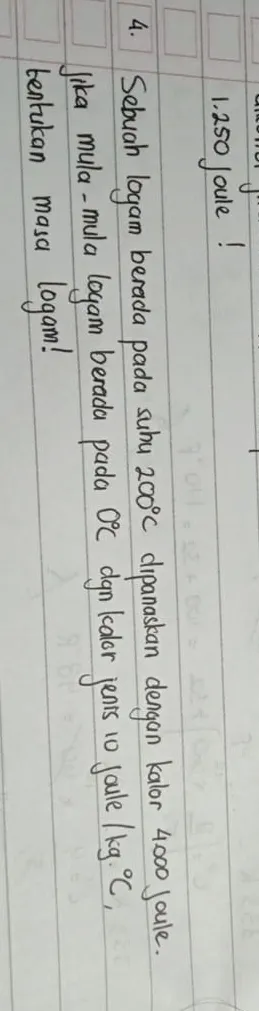 1.250 Joule !
4. Sebuah logam berada pada suhu 200°C dipanaskan dengan kalor 4.000 Joule.
Jika mula-mula logam berada pada 0°C dgn kalor jenis 10 Joule/kg.°C,
tentukan masa logam!